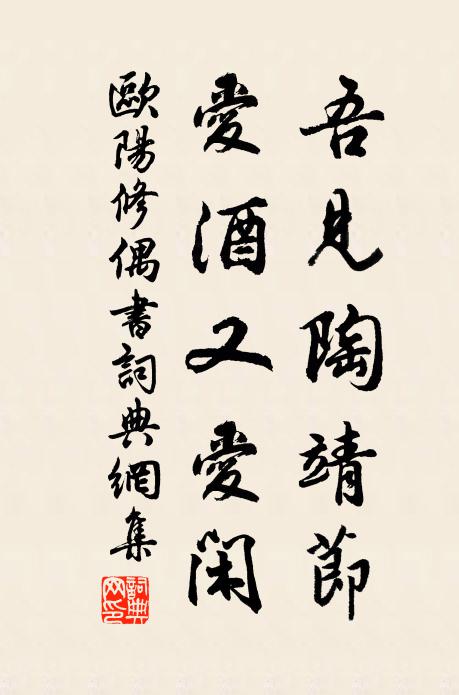 吾見陶靖節
愛酒又愛閑
歐陽修偶書詞典網集
詞典网印